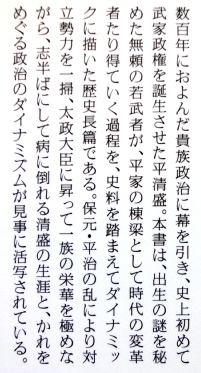 数百年におよんだ貴族政治に幕を引き、史上初めて
武家政権を誕生させた平清盛。本書は、出生の謎を秘
めた無頼の若武者が、平家の棟梁として時代の変革
者たり得ていく過程を、史料を踏まえてダイナミッ
クに描いた歴史長篇である。保元・平治の乱により対
立勢力を一掃、太政大臣に昇って一族の栄華を極めな
がら、志半ばにして病に倒れる清盛の生涯と、かれを
めぐる政治のダイナミズムが見事に活写されている。